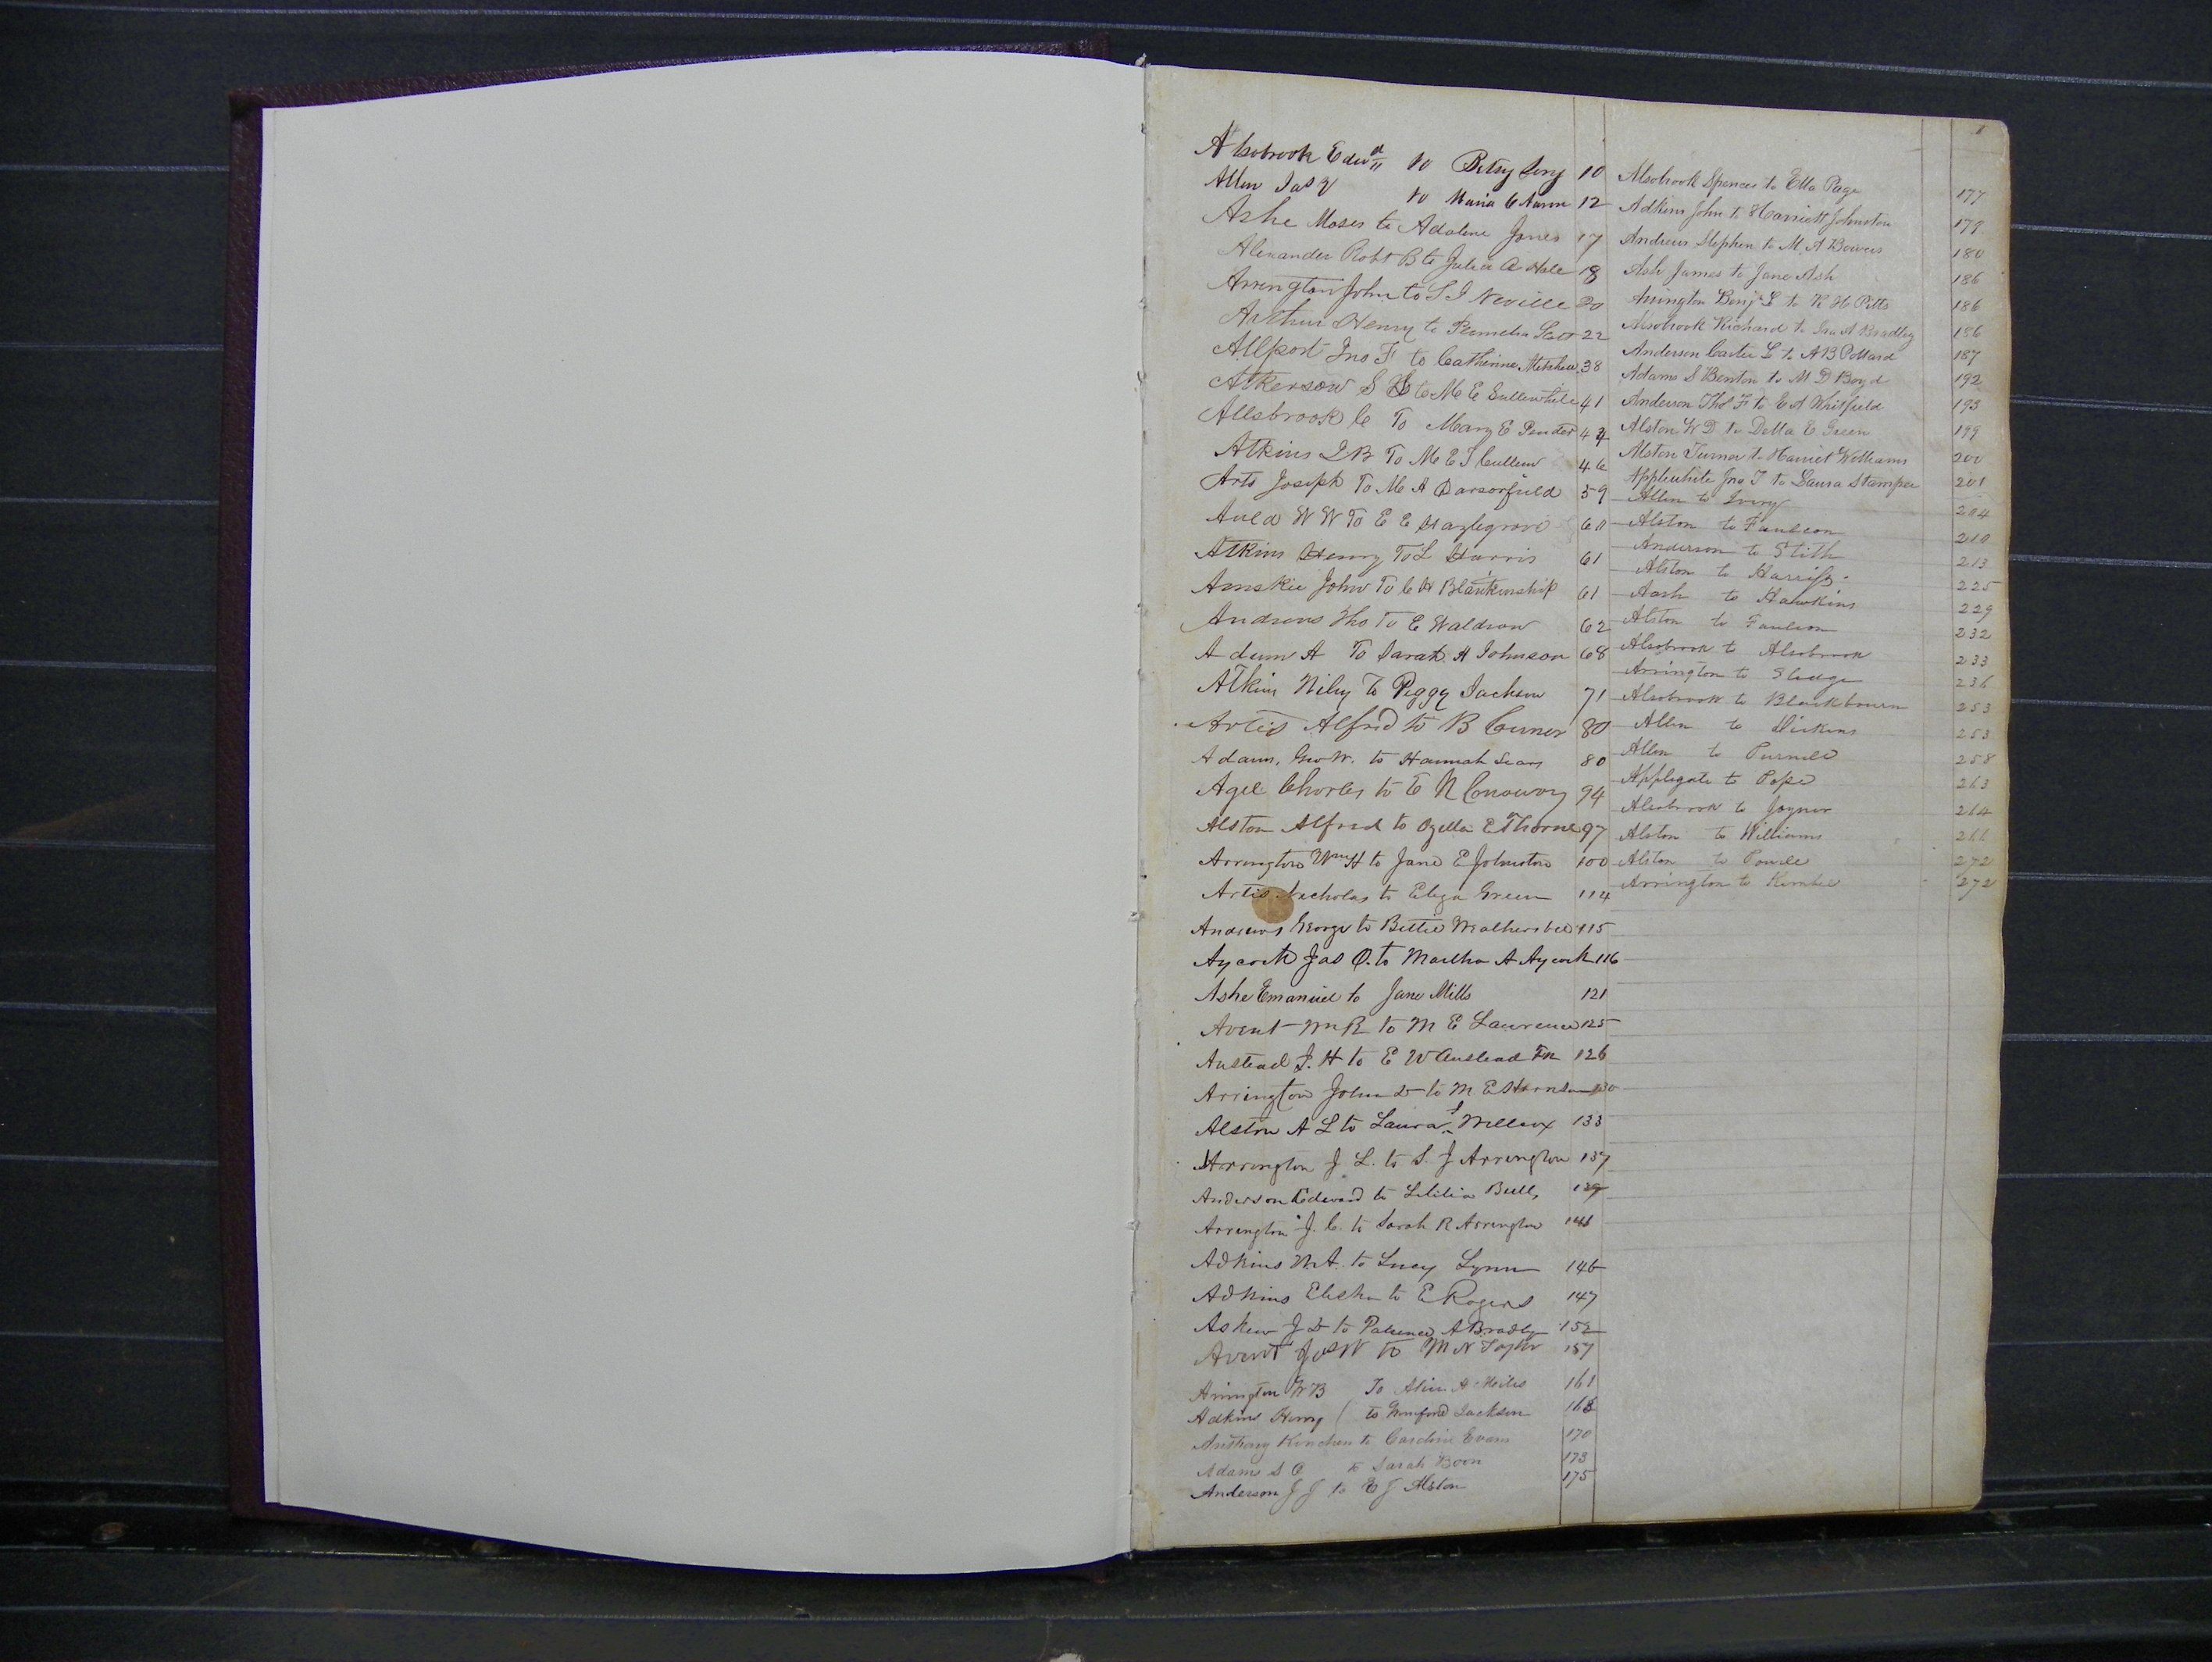 Alsobrook Edwd to Betsy 10
Allen Jas to Maria C Aaron 12
Ashe Moses to Adaline Jones 17
Alexander Robt B to Julia A Hale 18
Arrington John to S J Neville 20
Arthur Henry to Permelia Scott 22
Allport Jno F to Catherine Mitchell 38
Atkerson S to M E 41
Allsbrook C To Mary E Pender 44
Atkins To M E J Cullum 46
Arts Joseph To M A 59
Auld W W To E E Hazlegrove 60
Atkins Henry To L Harris 61
John To C H Blankenship 61
Andrews Tho To E Waldron 62
Adum A To Sarah A Johnson 68
Atkins Wiley To Peggy Jackson 71
Artis Alfred to B 80
Adams, Geo W. to Hannah 80
Agee Charles to E N Conoway 94
Alston Alfred to Ozella E Thorne 97
Arrington Wm H to Jane E Johnston 100
Artis Nicholas to Eliza Green 114
Andrews George to Bettie Weathersbee 115
Aycock Jas O. to Martha A Aycock 116
Ashe Emanuel to Jane Mills 121
Avent Wm R to M E Lawrence 125
Austead J. H to E W Austead 126
Arrington John to M E 130
Alston A L to Laura Willcox 133
Arrington J L. to S. J Arrington 137
Anderson Edward to Lilitia Bull,
Arrington J. C. to Sarah R Arrington
Adkins to Lucy Lynn 146
Adkins Elisha to E Rogers 147
Askew J to Patience A Bradly 152
Avent Jas W to M N Taylor 157
Arrington W B To 161
Adkins Henry to Jackson 168
Anthony Kinchen to Caroline Evans 170
Adams S to Sarah Boon 173
Anderson J J to E J Alston 175
Alsobrook Spencer to Ella Page 177
Adkins John to Harriett Johnston 179
Andrews Stephen to M. A Bowers 180
Ash James to Jane Ash 186
Arrington Benj L to R H Pitts 186
Alsobrook Richard to A Bradley 186
Anderson Carter L to A B Pollard 187
Adams S Benton to M D Boyd 192
Anderson Thos F to E A Whitfield 193
Alston W D to Della E Green 199
Alston Turner to Harriet Williams 200
Applewhite Jno T to Laura Stamper 201
Allen to Ivory 204
Alston to Faulcon 210
Anderson to Stith 213
Alston to Harriss 225
Aash to Hawkins 229
Alston to Faulcon 232
Alsobrook to Alsobrook 233
Arrington to Sledge 236
Alsobrook to Blackbourn 253
Allen to Dickens 253
Allen to Purnell 258
Applegate to Pope 263
Alsobrook to Joyner 264
Alston to Williams 266
Alston to Powell 272
Arrington to 272